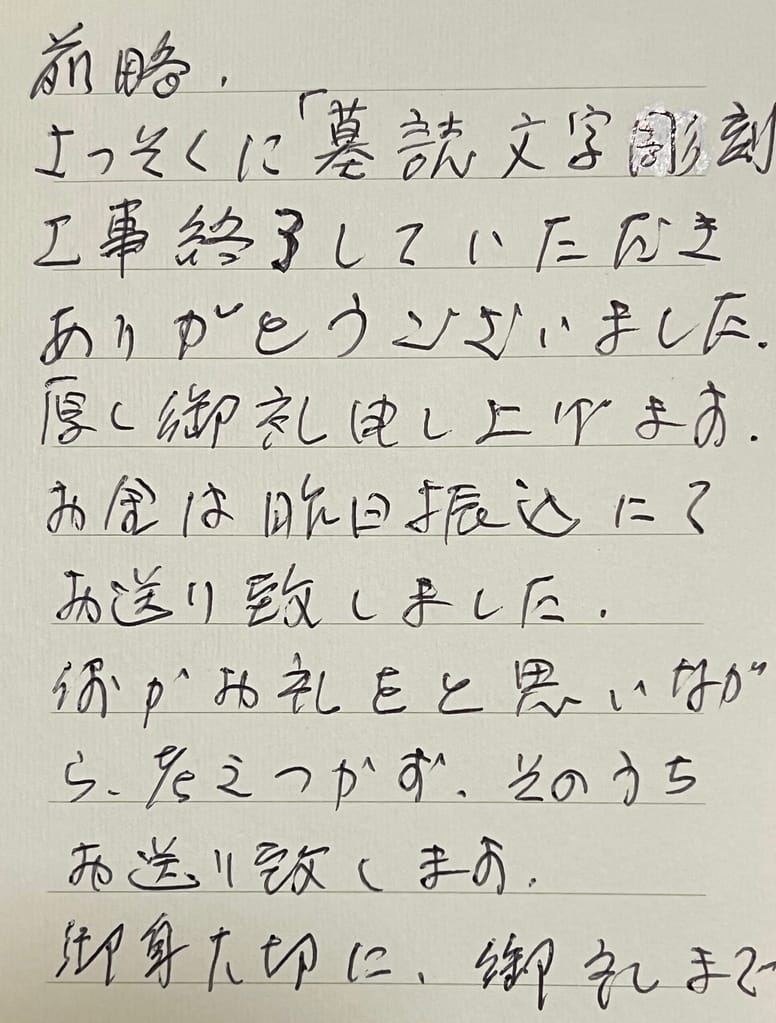 前略.
さっそくに「墓誌文字彫刻
工事終了していただき
ありがとうございました.
厚く御礼申し上げます.
お金は昨日振込にて
お送り致しました.
何かお礼をと思いなが
ら、考えつかず、そのうち
お送り致します.
御身大切に、御礼まで